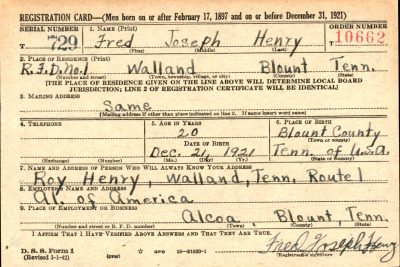 REGISTRATION CARD—(Men born on or after February 17, 1897 and on or before December 31, 1921)
SERIAL NUMBER 1. NAME (Print) ORDER NUMBER
T 729 Fred Joseph Henry 10662
(First) (Middle) (Last)
2. PLACE OF RESIDENCE (Print)
R.F.D. No. 1 Walland Blount Tenn.
(Number and street) (Town, township, village, or city) (County) (State)
[THE PLACE OF RESIDENCE GIVEN ON THE LINE ABOVE WILL DETERMINE LOCAL BOARD
JURISDICTION; LINE 2 OF REGISTRATION CERTIFICATE WILL BE IDENTICAL]
3. MAILING ADDRESS
Same
[Mailing address if other than place indicated on line 2. If same insert word same]
4. TELEPHONE 5. AGE IN YEARS 6. PLACE OF BIRTH
20 Blount County
DATE OF BIRTH (Town or county)
Dec. 21, 1921 Tenn. of U.S.A.
(Exchange) (Number) (Mo.) (Day) (Yr.) (State or country)
7. NAME AND ADDRESS OF PERSON WHO WILL ALWAYS KNOW YOUR ADDRESS
Roy Henry, Walland, Tenn. Route 1
8. EMPLOYER'S NAME AND ADDRESS
Al. of America
9. PLACE OF EMPLOYMENT OR BUSINESS
Alcoa, Blount, Tenn.
(Number and street or R. F. D. number) (Town) (County) (State)
I AFFIRM THAT I HAVE VERIFIED ABOVE ANSWERS AND THAT THEY ARE TRUE.
D. S. S. Form 1 GPO 16—21630-1 Fred Joseph Henry
(Revised 1-1-42) (over)